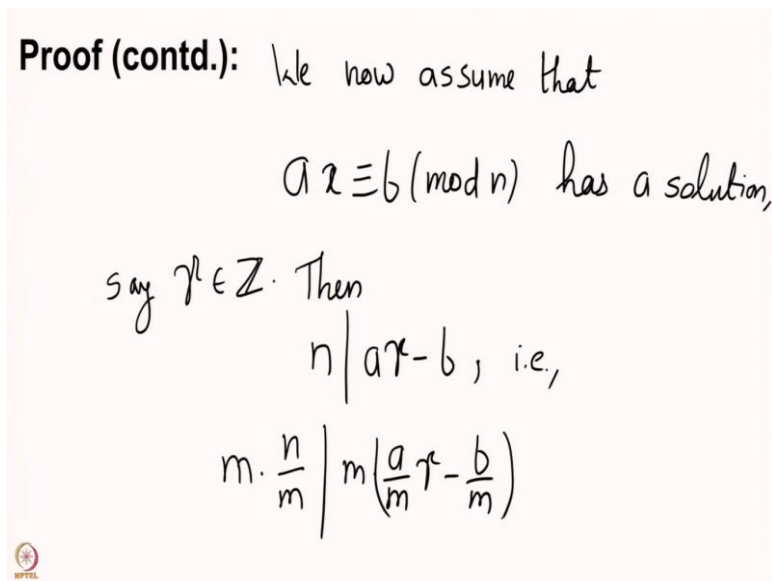 Proof (contd.): We now assume that
ax ≡ b (mod n) has a solution,
say r ∈ ℤ. Then
n | ar - b, i.e.,
m · n/m | m(a/m r - b/m)
NPTEL